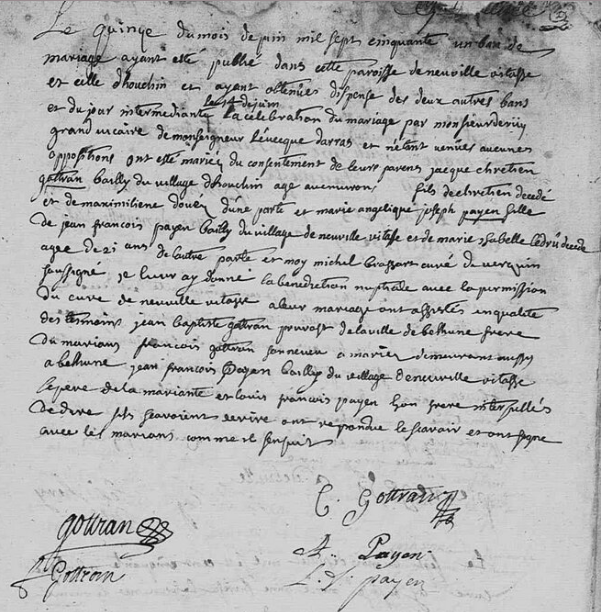 Le quinze du mois de juin mil sept cinquante un ban de
mariage ayant esté publié dans cette paroisse de neuville vitasse
et celle dhouchin et ayant obtenües dispense des deux autres bans
le 14 de juin
et du jour intermediante la celebration du mariage par monsieur
grand vicaire de monseigneur levecque darras et nétant venües aucunes
oppositions ont esté mariés du consentement de leurs parens jacque chretien
gottran bailly du village dhouchin age denviron fils de chretien decedé
et de maximiliene douez dune parte et marie angelique joseph payen fille
de jean françois payen bailly du village de neuville vitasse et de marie isabelle ledrû decede
agee de 21 ans de lautre parte et moy michel brassart curé de verquin
soussigne je leur ay donné la benediction nuptiale avec la permission
du cure de neuville vitasse a leur mariage ont assistes en qualité
des tesmoins jean baptiste gottran prevost de la ville de bethune frere
du marians françois gottran son neveu a marier demeurant aussy
a bethune jean françois Payen bailly du village de neuville vitasse
le pere de la mariante et louis françois payen son frere interpellés
de dire sils scavoient decrire ont repondue le scavoir et ont signe
avec les marians comme il sensuit
C. Gottran
gottran
Payen
Gottran
payen